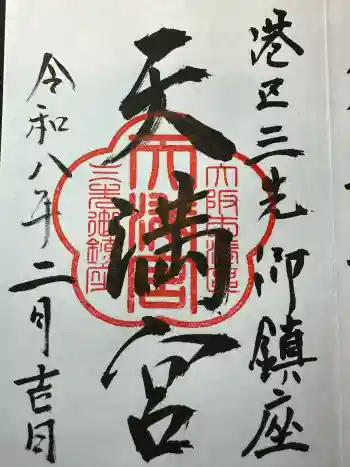 港区三先御鎮座
天満宮
令和八年二月吉日
大阪市港區
天満宮
三先御鎮座